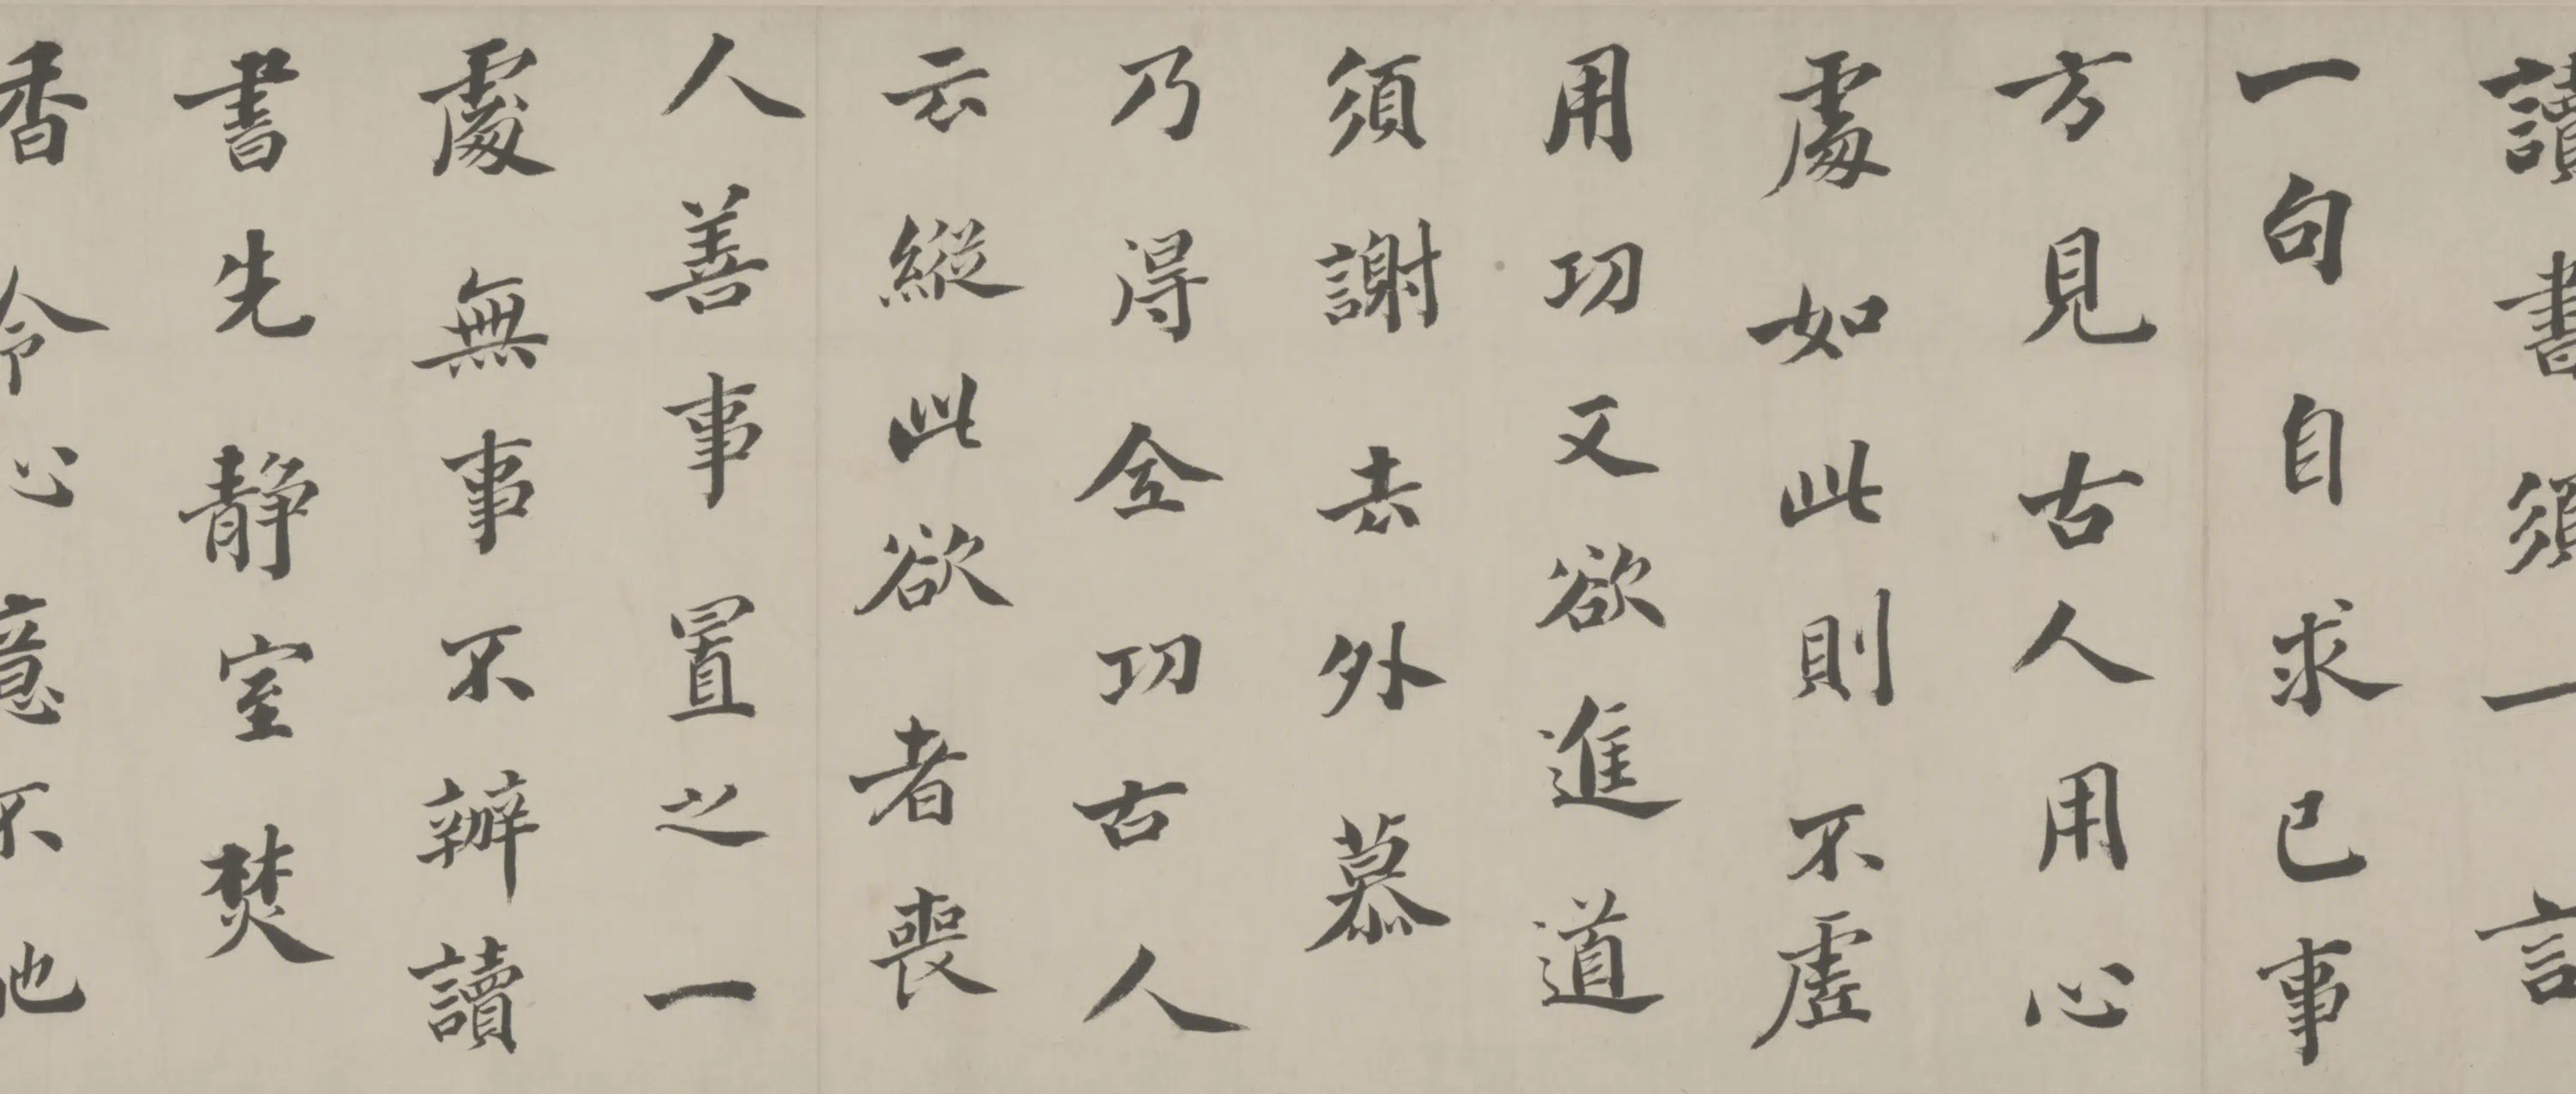 讀書須一言
一句自求己事
方見古人用心
處如此則不虛
用功又欲進道
須謝去外慕
乃得全功古人
云縱此欲者喪
人善事置之一
處無事不辦讀
書先靜室焚
香令心意不他